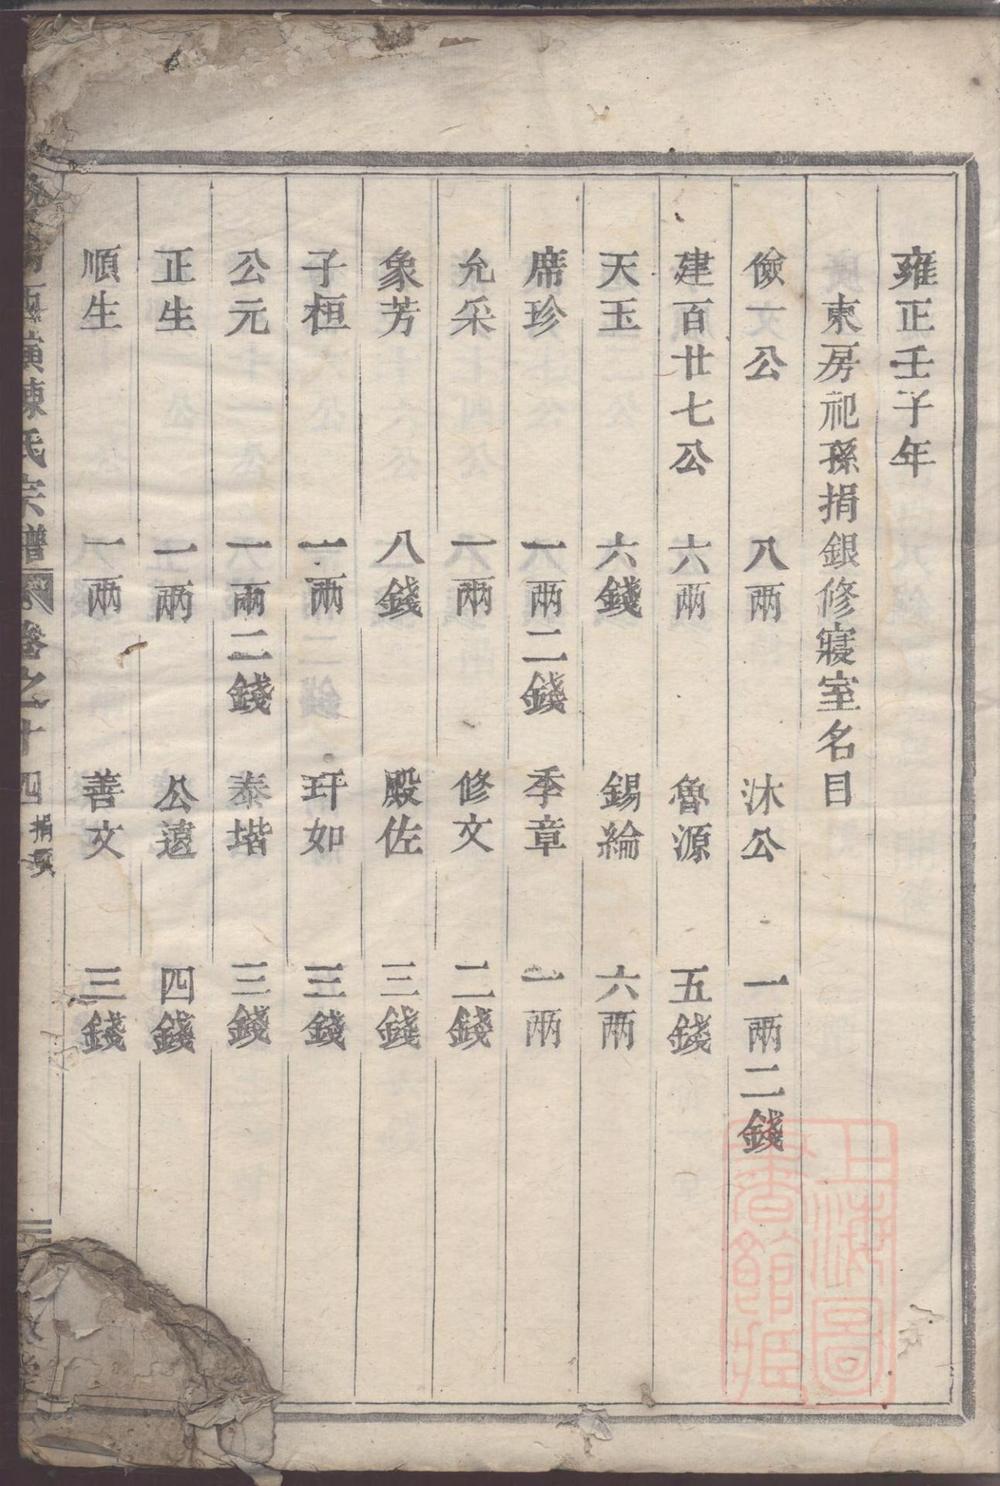 雍正壬子年
東房祀孫捐銀修寢室名目
儉一公 八兩 沐公 一兩二錢
建百廿七公 六兩 魯源 五錢
天玉 六錢 錫綸 六兩
席珍 一兩二錢 季章 一兩
允采 一兩 修文 二錢
象芳 八錢 殿佐 三錢
子桓 一兩 玕如 三錢
公元 一兩二錢 泰堦 三錢
正生 一兩 公遠 四錢
順生 一兩 善文 三錢
橫陳氏宗譜 卷之十四 捐
上海圖書館藏